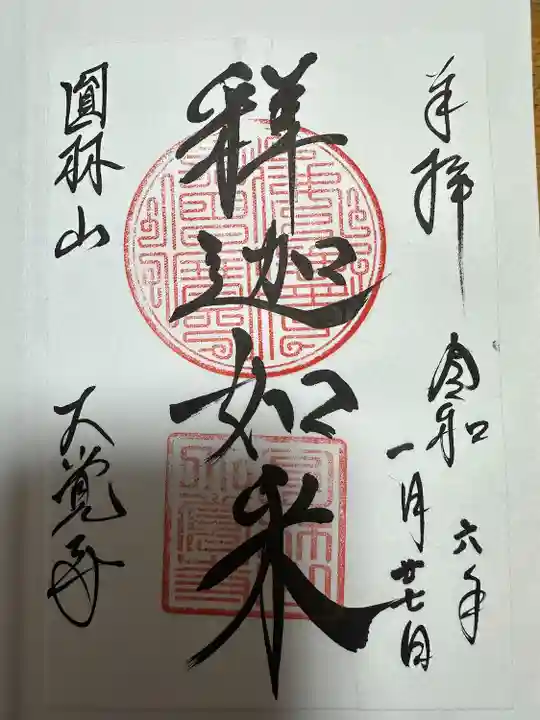 奉拝
令和六年
一月廿七日
釋迦如来
圓林山
大覚寺